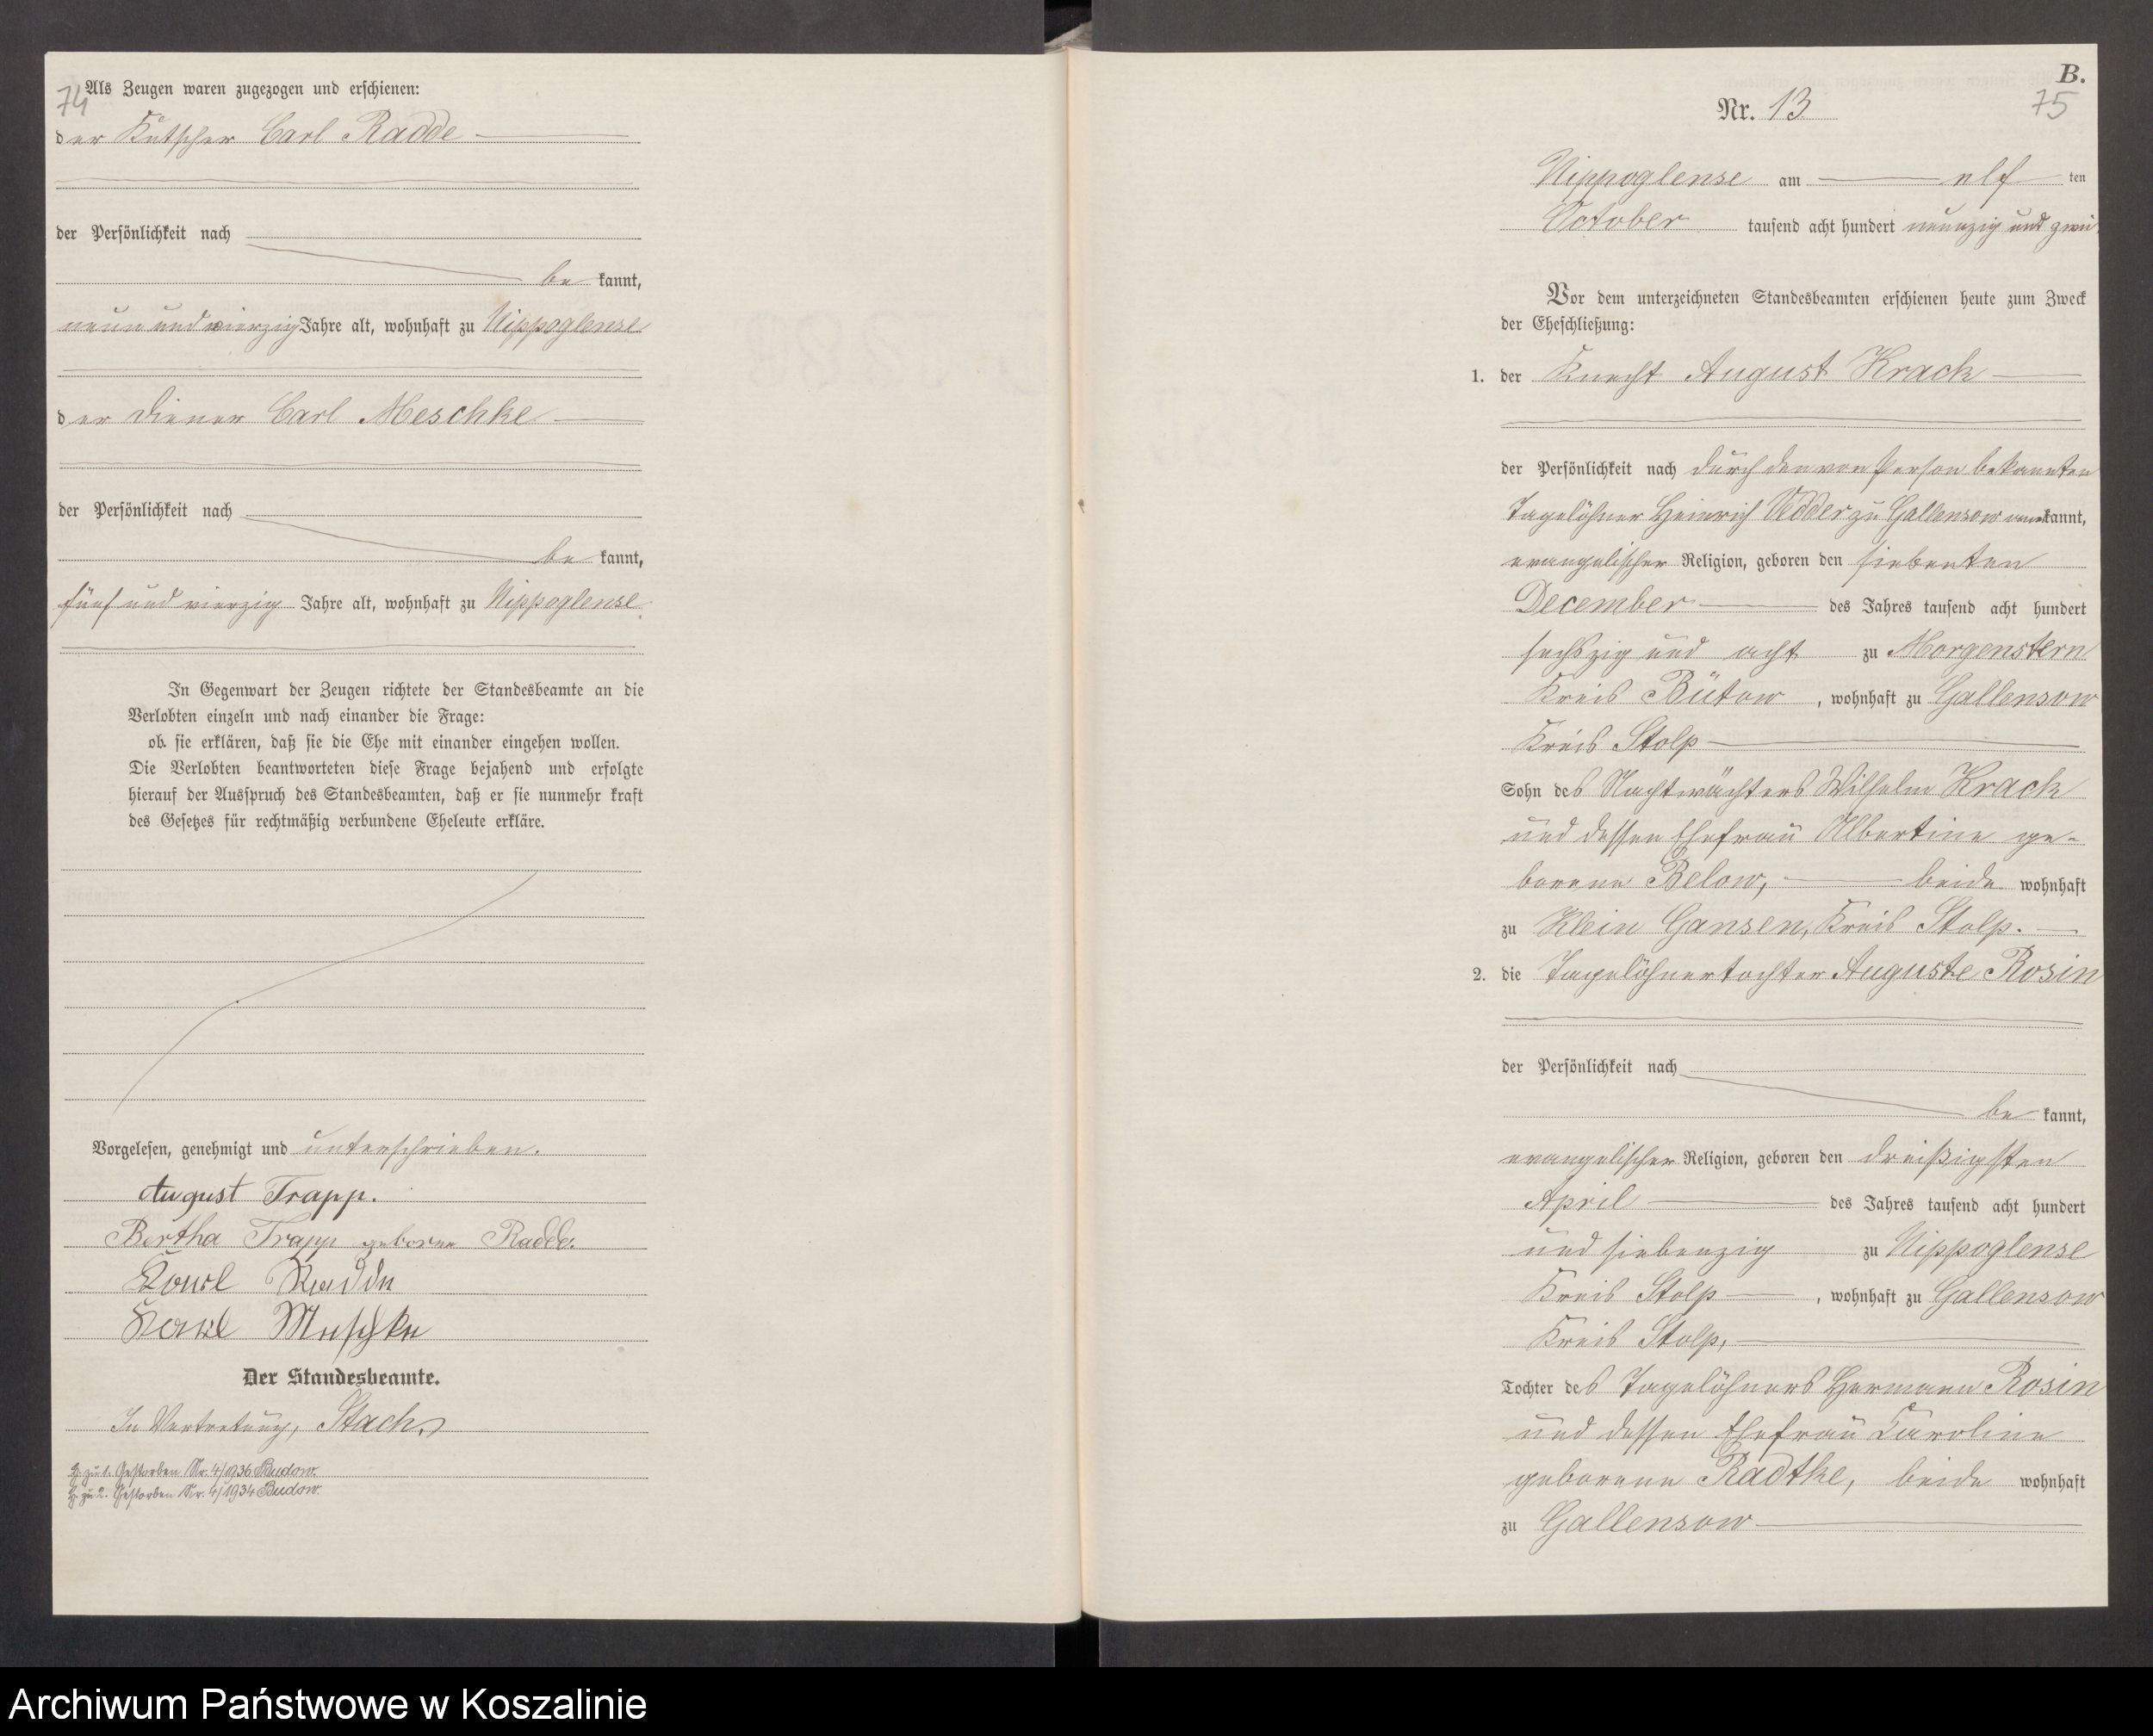 74
Als Zeugen waren zugezogen und erschienen:
der Kutscher Carl Radde
der Persönlichkeit nach
be kannt,
neun und vierzig Jahre alt, wohnhaft zu Nippoglense
der Diener Carl Meschke
der Persönlichkeit nach
be kannt,
fünf und vierzig Jahre alt, wohnhaft zu Nippoglense.
In Gegenwart der Zeugen richtete der Standesbeamte an die
Verlobten einzeln und nach einander die Frage:
ob sie erklären, daß sie die Ehe mit einander eingehen wollen.
Die Verlobten beantworteten diese Frage bejahend und erfolgte
hierauf der Ausspruch des Standesbeamten, daß er sie nunmehr kraft
des Gesetzes für rechtmäßig verbundene Eheleute erkläre.
Vorgelesen, genehmigt und unterschrieben.
August Trapp.
Bertha Trapp geborne Radde.
Karl Radde
Karl Meschke
Der Standesbeamte.
In Vertretung, Stach
H. zu 1. Gestorben Nr. 4/1936 Budow.
H. zu 2. Gestorben Nr. 4/1934 Budow.
B.
75
Nr. 13
Nippoglense am elf ten
October tausend acht hundert neunzig und zwei
Vor dem unterzeichneten Standesbeamten erschienen heute zum Zweck
der Eheschließung:
1. der Knecht August Krack
der Persönlichkeit nach durch den von Person bekannten
Tagelöhner Heinrich zu Gallensow anerkannt,
evangelischer Religion, geboren den siebenten
December des Jahres tausend acht hundert
sechszig und acht zu Morgenstern
Kreis Bütow, wohnhaft zu Gallensow
Kreis Stolp
Sohn des Nachtwächters Wilhelm Krack
und dessen Ehefrau Albertine ge-
borene Below, beide wohnhaft
zu Klein Gansen, Kreis Stolp.
2. die Tagelöhnertochter Auguste Rosin
der Persönlichkeit nach
be kannt,
evangelischer Religion, geboren den dreißigsten
April des Jahres tausend acht hundert
und siebenzig zu Nippoglense
Kreis Stolp, wohnhaft zu Gallensow
Kreis Stolp,
Tochter des Tagelöhners Hermann Rosin
und dessen Ehefrau Caroline
geborene Radtke, beide wohnhaft
zu Gallensow
Archiwum Państwowe w Koszalinie